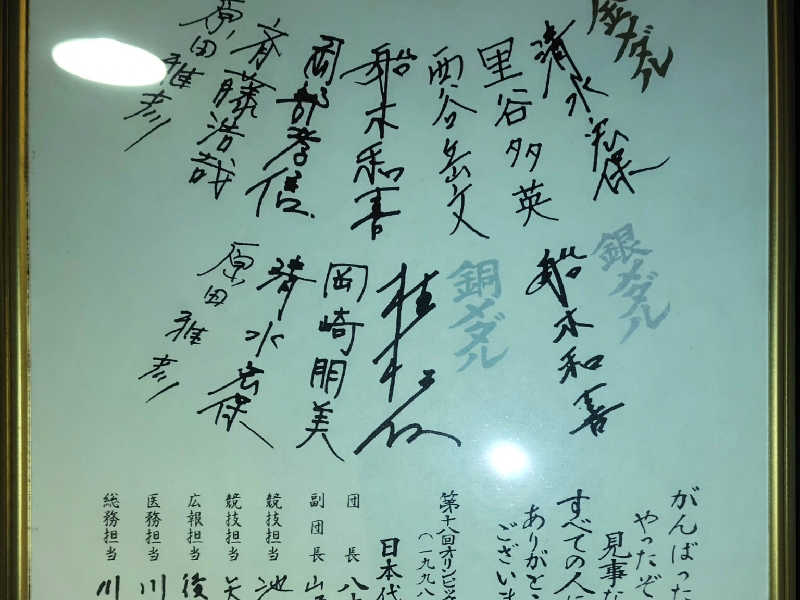 金メダル
清水宏保
里谷多英
西谷岳文
船木和喜
岡部孝信
斉藤浩哉
原田雅彦
銀メダル
船木和喜
銅メダル
植松仁
岡崎朋美
清水宏保
原田雅彦
がんばった
やったぞ
見事な
すべての人に
ありがとう
ございま
第十八回オリンピック
(一九九八
日本代
団長 八
副団長 山
競技担当 池
競技担当 矢
広報担当 後
医務担当 川
総務担当 川